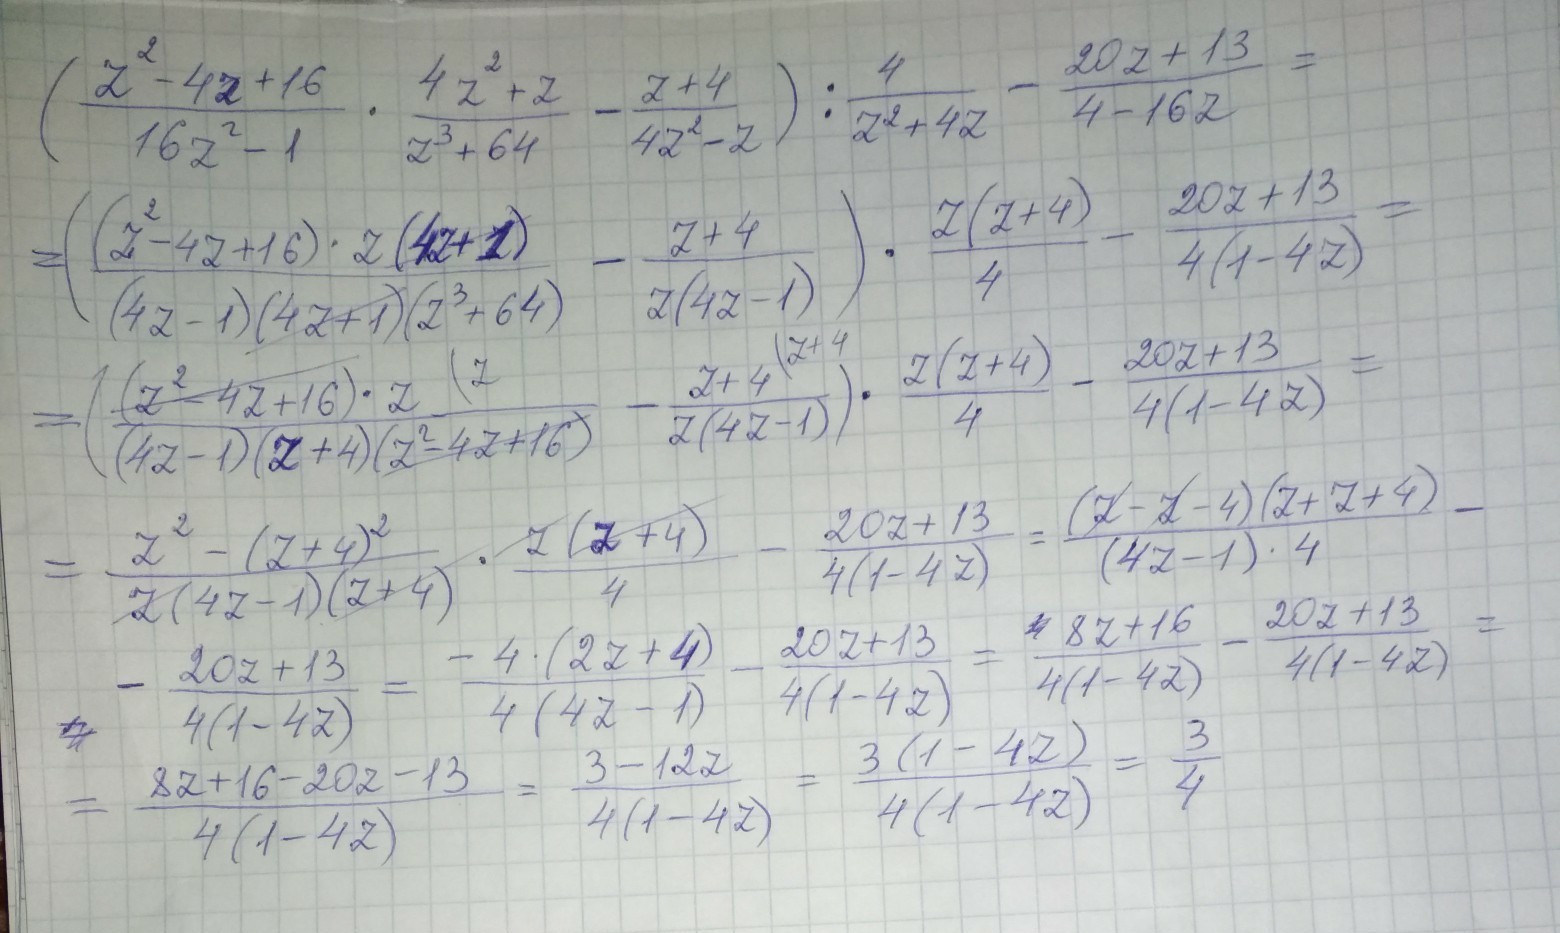 ( (z² - 4z + 16)/(16z² - 1) · (4z² + z)/(z³ + 64) - (z + 4)/(4z² - z) ) : 4/(z² + 4z) - (20z + 13)/(4 - 16z) =
= ( ((z² - 4z + 16) · z(4z + 1))/((4z - 1)(4z + 1)(z³ + 64)) - (z + 4)/(z(4z - 1)) ) · (z(z + 4))/4 - (20z + 13)/(4(1 - 4z)) =
= ( ((z² - 4z + 16) · z (z)/((4z - 1)(z + 4)(z² - 4z + 16)) - (z + 4 (z + 4)/(z(4z - 1)) ) · (z(z + 4))/4 - (20z + 13)/(4(1 - 4z)) =
= (z² - (z + 4)²)/(z(4z - 1)(z + 4)) · (z(z + 4))/4 - (20z + 13)/(4(1 - 4z)) = ((z - z - 4)(z + z + 4))/((4z - 1) · 4) -
- (20z + 13)/(4(1 - 4z)) = (-4 · (2z + 4))/(4(4z - 1)) - (20z + 13)/(4(1 - 4z)) = (8z + 16)/(4(1 - 4z)) - (20z + 13)/(4(1 - 4z)) =
= (8z + 16 - 20z - 13)/(4(1 - 4z)) = (3 - 12z)/(4(1 - 4z)) = (3(1 - 4z))/(4(1 - 4z)) = 3/4